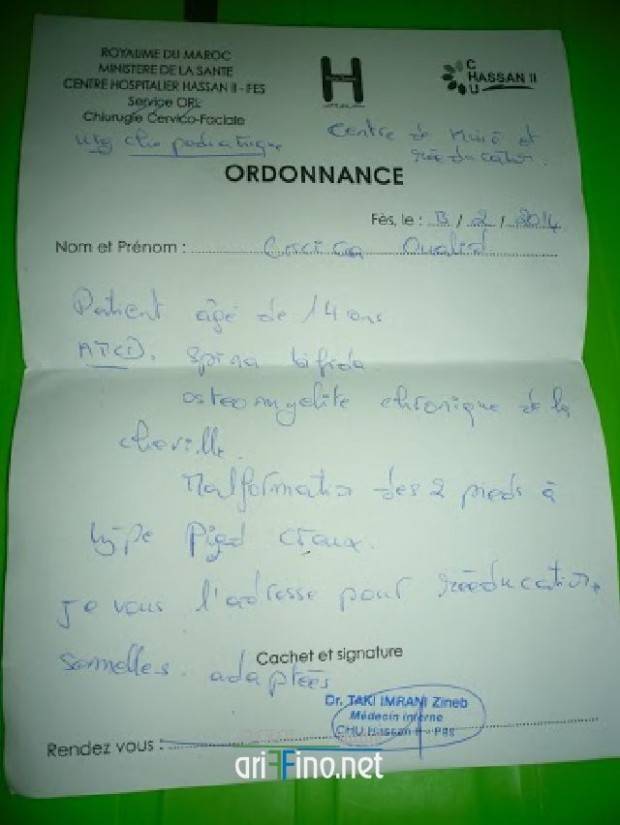 ROYAUME DU MAROC
MINISTERE DE LA SANTE
CENTRE HOSPITALIER HASSAN II - FES
Service ORL
Chirurgie Cervico-Faciale
H
CHU
HASSAN II
Urg Chir pediatrique
Centre de et
rééducation.
ORDONNANCE
Fès, le : 13 / 2 / 2014
Nom et Prénom : Oualid
Patient âgé de 14 ans
ATCD. Spina bifida
osteomyelite chronique de la
cheville.
Malformation des 2 pieds à
type Pied creux.
Je vous l'adresse pour rééducation,
semelles adaptées
Cachet et signature
Dr. TAKI IMRANI Zineb
Médecin interne
CHU Hassan II - Fès
Rendez vous :
ariffino.net